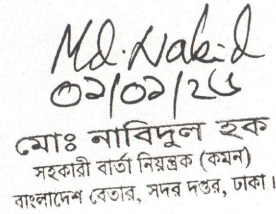 Md. Nabid
০২/০২/২৬
মোঃ নাবিদুল হক
সহকারী বার্তা নিয়ন্ত্রক (কমন)
বাংলাদেশ বেতার, সদর দপ্তর, ঢাকা।